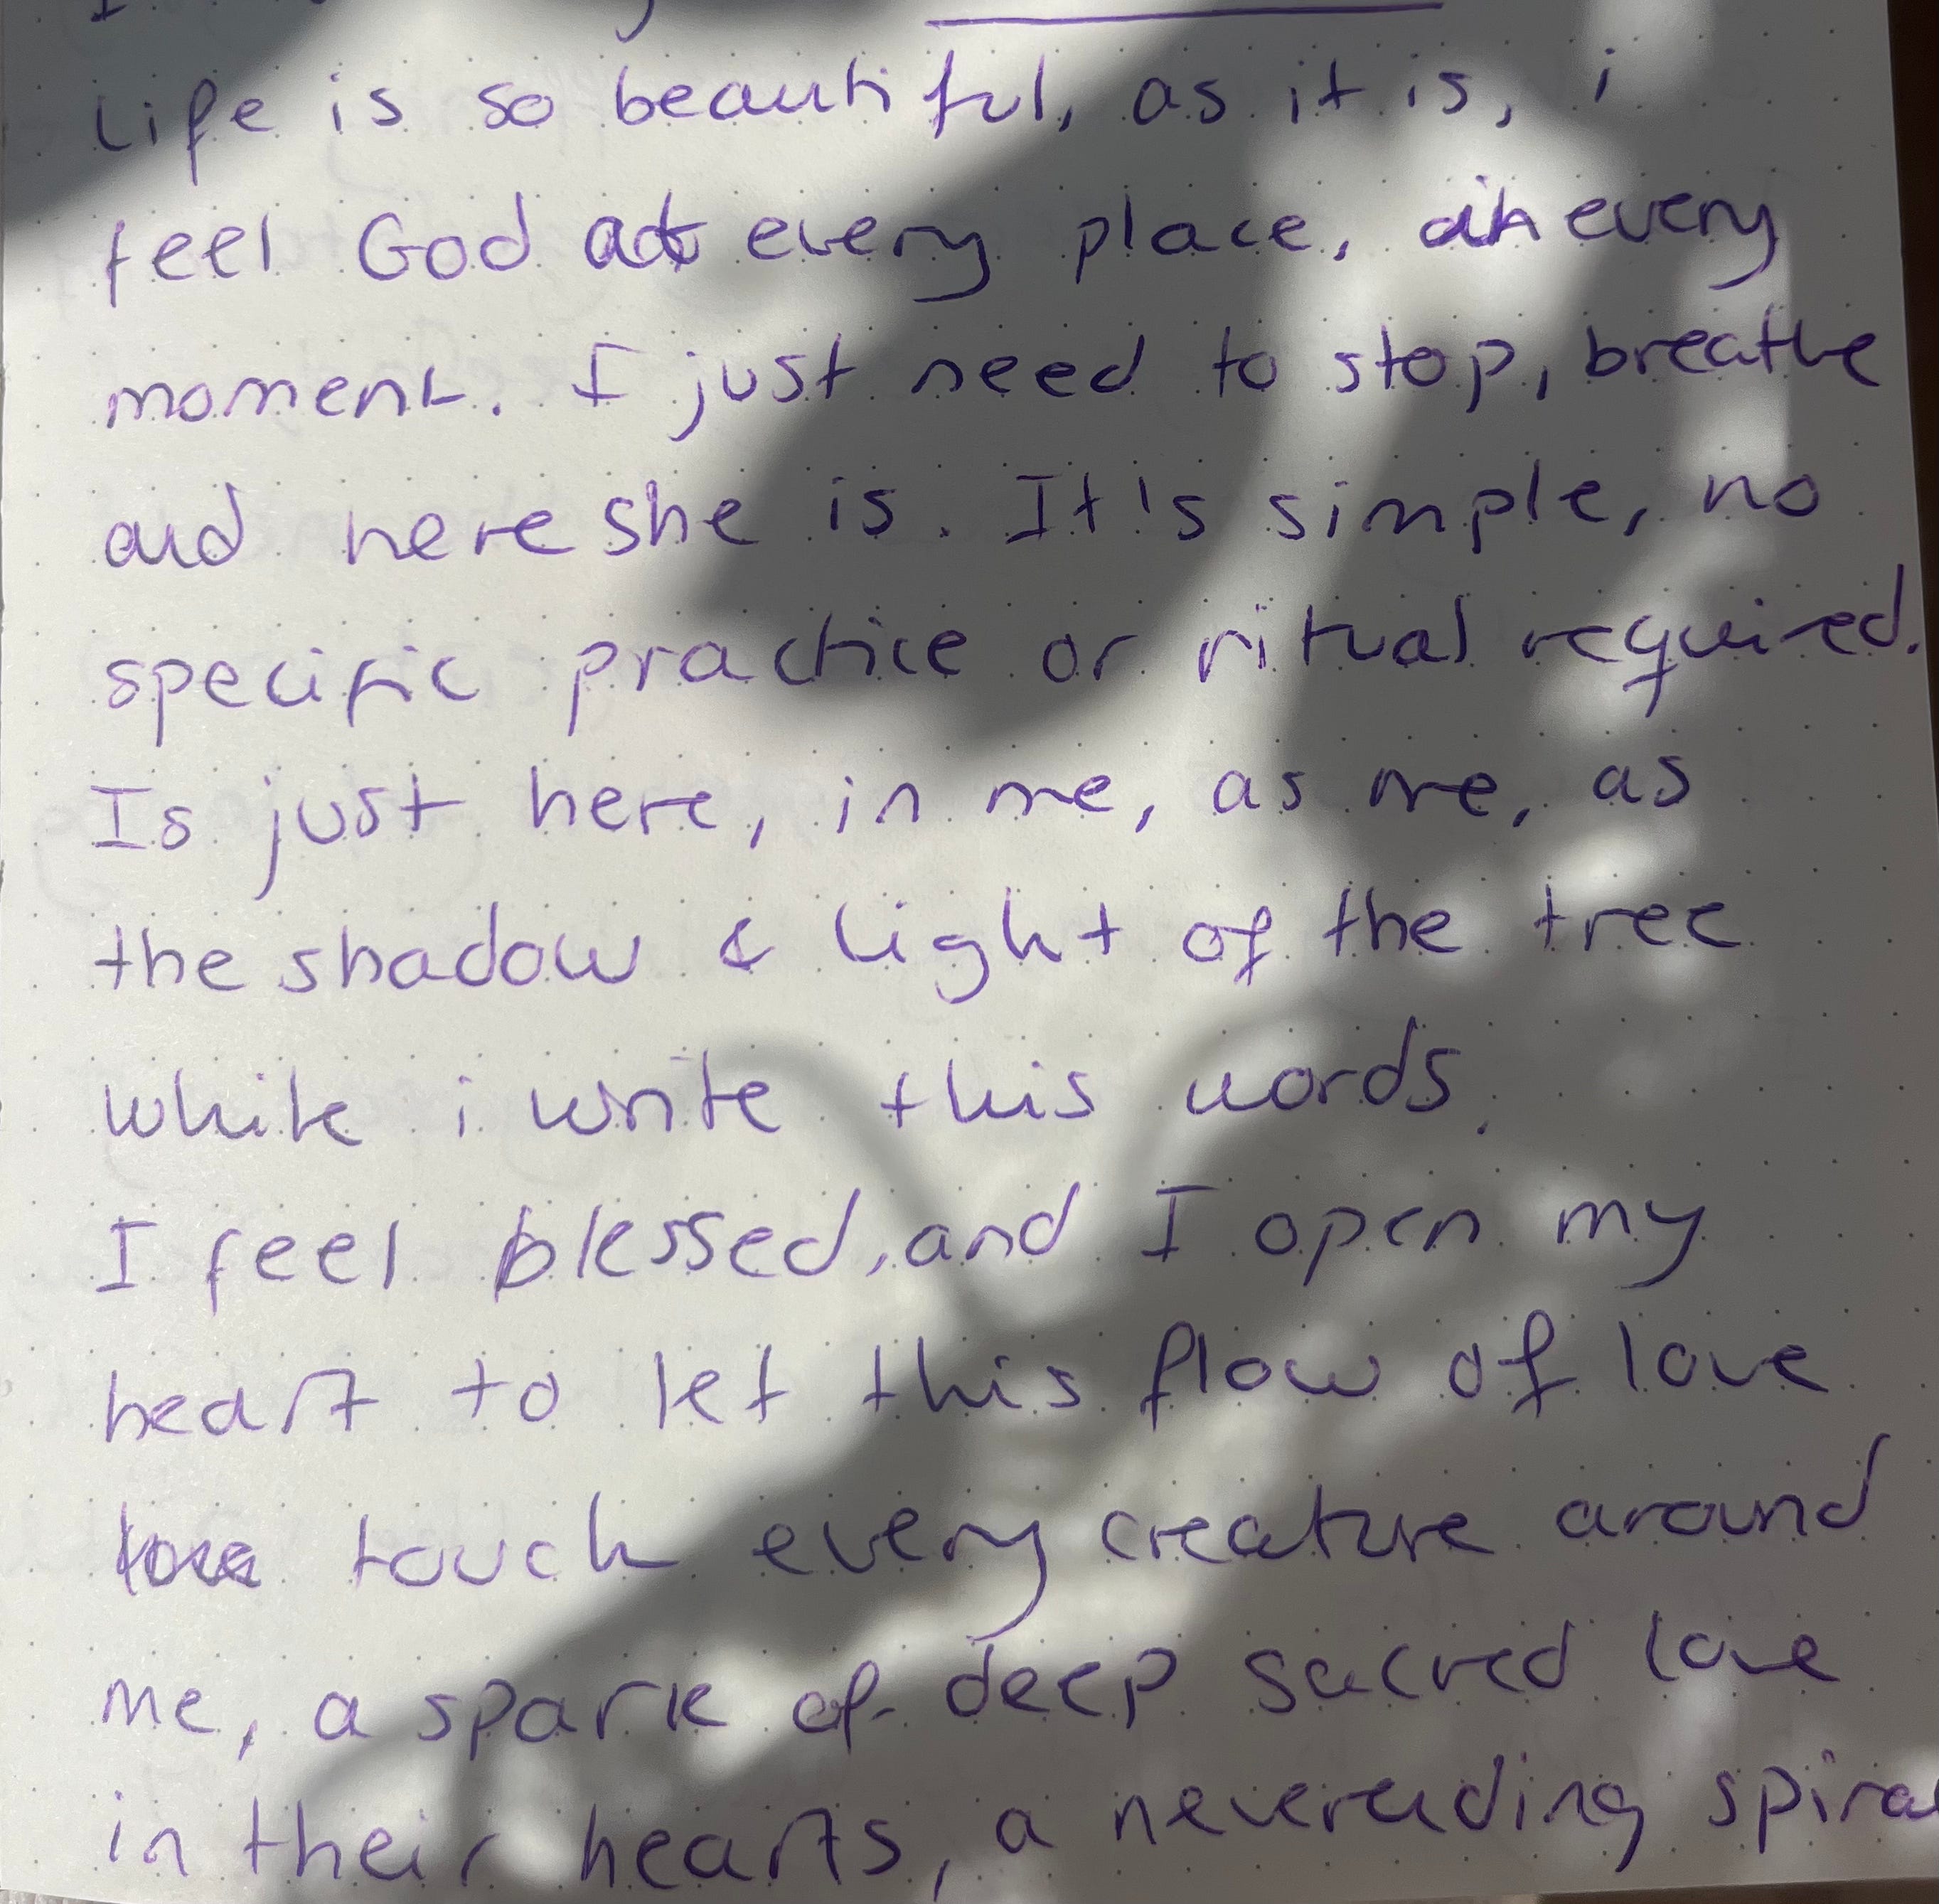 Life is so beautiful, as it is, i
feel God at every place, in every
moment. I just need to stop, breathe
and here she is. It's simple, no
specific practice or ritual required.
Is just here, in me, as me, as
the shadow & light of the tree
while i write this words.
I feel blessed, and I open my
heart to let this flow of love
touch every creature around
me, a spark of deep sacred love
in their hearts, a neverending spiral